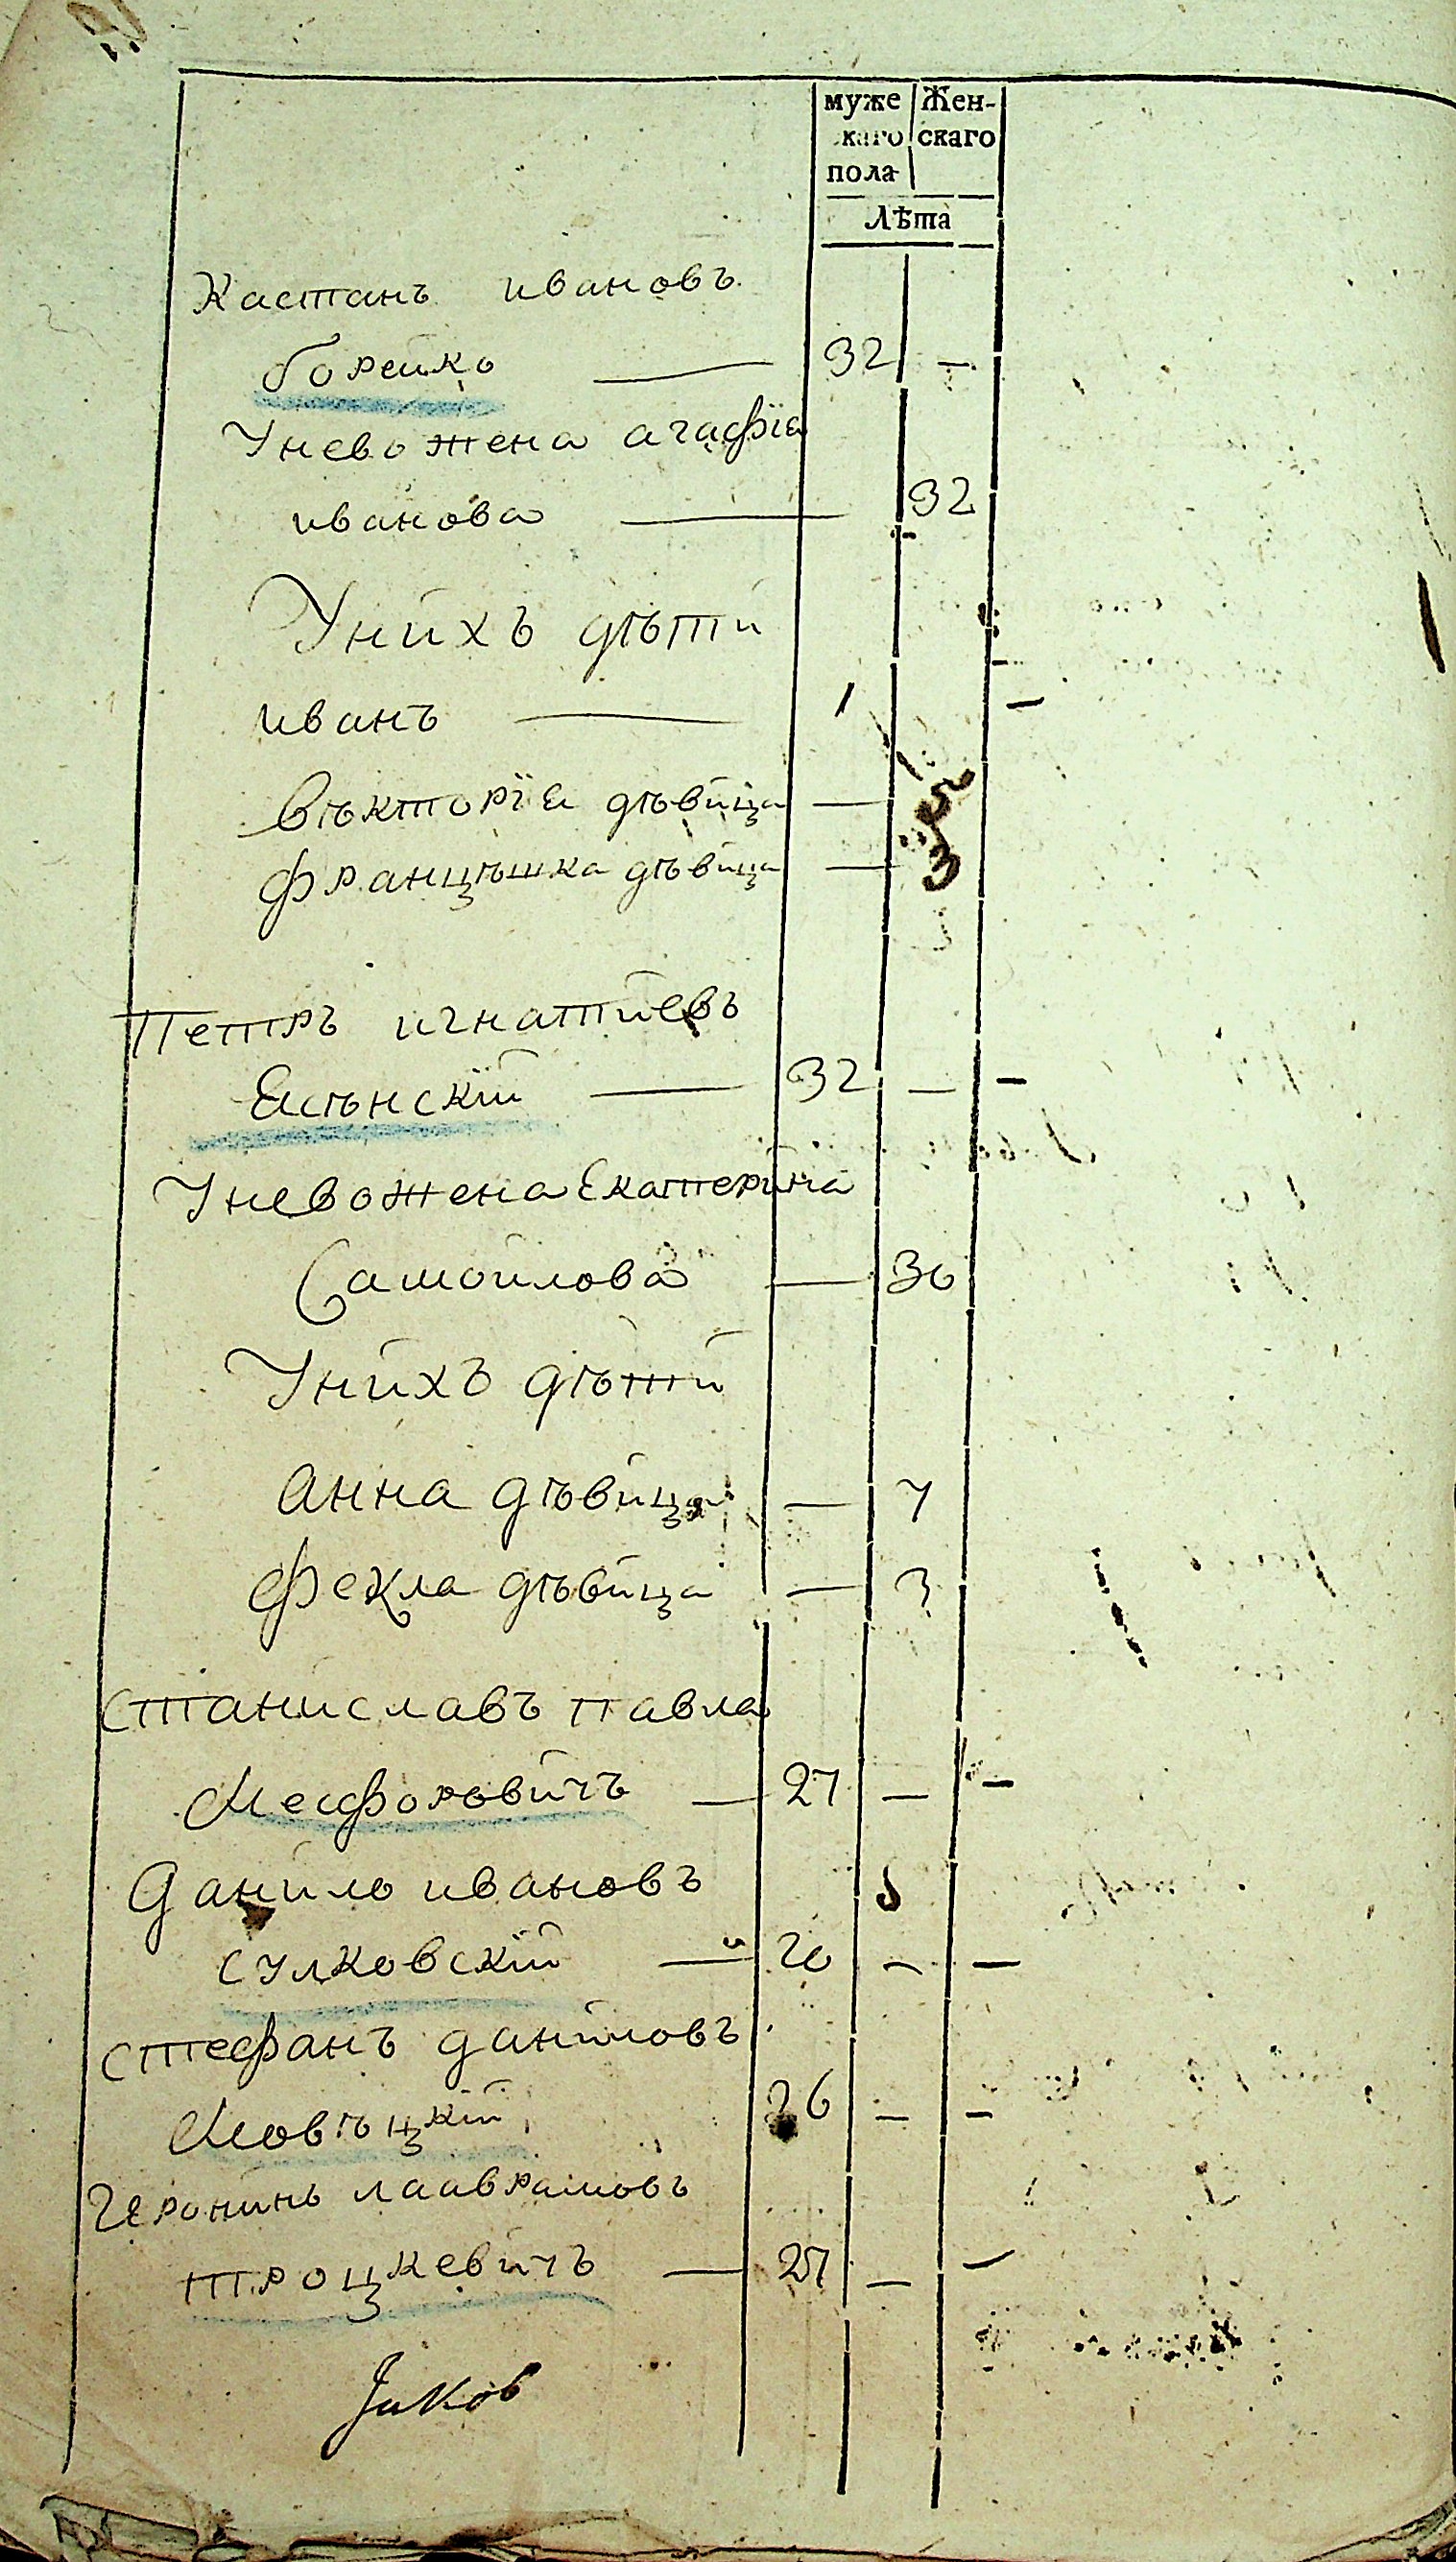 муже Жен-
скаго скаго
пола
Лѣта
Кастанъ ивановъ
борейко — 32 —
Унево жена агафїа
иванова — 32
Унихъ дѣти
иванъ — 1
вѣкторїа дѣвица — 5
францѣшка дѣвица — 3
Петръ игнатиевъ
Ясѣнскїй — 32 —
Унево жена Екатерина
Самойлова — 30
Унихъ дѣти
Анна дѣвица — 7
Фекла дѣвица — 3
Станиславъ павла
Мефоровичъ — 27 —
Данило ивановъ
Сулковскїй — 20 —
Стефанъ даниловъ
26 —
лаврамовъ
троцкевичъ — 27 —